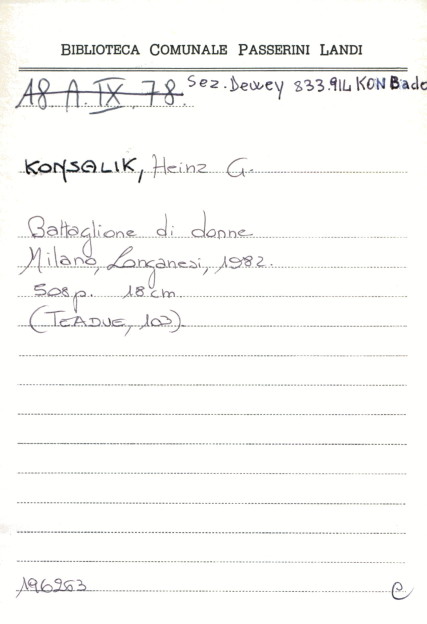 BIBLIOTECA COMUNALE PASSERINI LANDI
A8 A. IX. 78. Sez. Dewey 833.914 KON Bade
KONSALIK, Heinz G.
Battaglione di donne
Milano, Longanesi, 1982.
508 p. 18 cm.
(TEADUE, 103).
196263
e